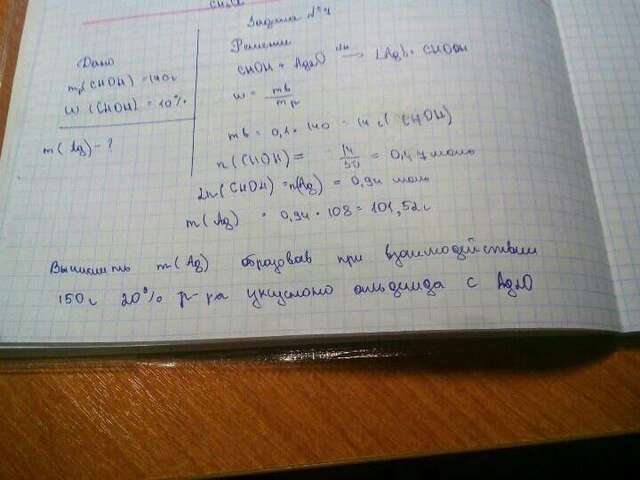 Задача №4
Дано
Решение
mp(CHOH) = 140г
CHOH + Ag2O → 2Ag↓ + CHOOH
W (CHOH) = 10%
w = mв/mp
m(Ag) - ?
mв = 0,1 · 140 = 14 г (CHOH)
n(CHOH) = 14/30 = 0,47 моль
2n(CHOH) = n(Ag) = 0,94 моль
m(Ag) = 0,94 · 108 = 101,52 г
Вычислить m(Ag) образовав при взаимодействии
150г 20% р-ра уксусного альдегида с Ag2O